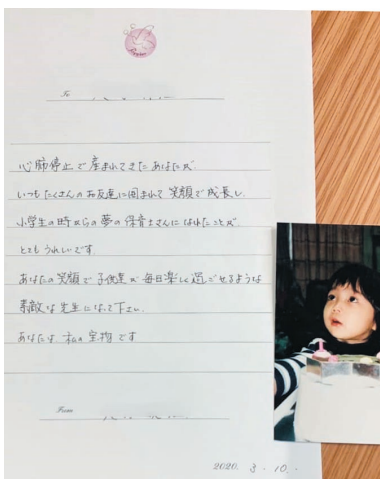 To
心肺停止で産まれてきたあなたが
いつもたくさんのお友達に囲まれて笑顔で成長し
小学生の時からの夢の保育士さんになれたことが
とてもうれしいです。
あなたの笑顔で子供達が毎日楽しく過ごせるような
素敵な先生になって下さい。
あなたは、私の宝物です
From
2020. 3. 10.